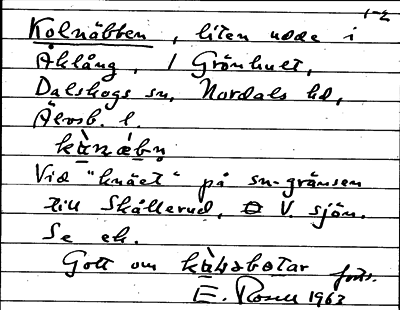 1-2
Kolnäbben, liten udde i
Åklång, / Grönhult,
Dalskogs sn, Nordals hd,
Älvsb. l.
Vid "knäet" på sn-gränsen
till Skållerud, V. sjön.
Se ek.
Gott om
forts.
E. Rosell 1963